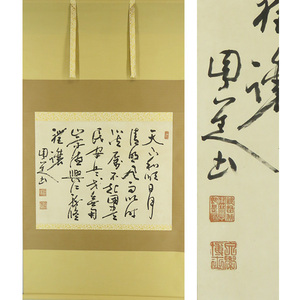 天下和順日月
清明風雨以時
災厲不起國豊
民安兵戈無用
崇徳興仁務脩
禮讓